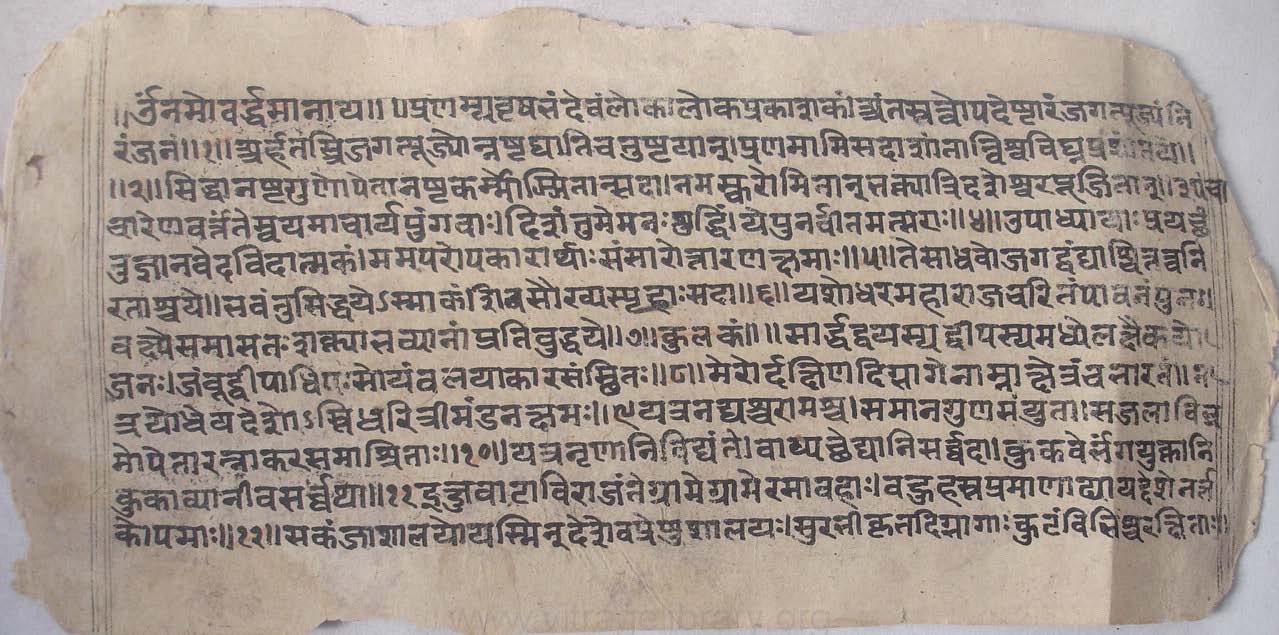 ॥ र्ॐनमोवर्द्धमानाय॥ ॥प्रणम्यवृषभंदेवंलोकालोकप्रकाशकं।अ्यंतस्तत्त्वोपदेष्टारंजगत्पूज्यंनि
रंजनं॥१॥अर्हतस्त्रिजगत्पूज्यान्नष्टघातिचतुष्टयान्।प्रणमामिसदाशांतान्विश्वविघ्नप्रशांतये॥
॥२॥सिद्धानष्टगुणोपेतानष्टकर्म्मोज्झितान्सदा।नमस्करोमितान्भक्त्यात्रिदशेश्वरपूजितान्॥३पंचा
चारेणवर्त्तंतेस्वयमाचार्यपुंगवाः।दिशंतुमेमनःशुद्धिं।येपुनर्वीतमत्सराः॥४॥उपाध्यायाःप्रयच्छं
तुज्ञानवेदविदात्मकं।ममपरोपकारार्थाःसंसारोत्तारणक्षमाः॥५॥तेसाधवोजगद्वंद्याश्चित्तत्त्वनि
रताश्चये॥भवंतुसिद्धयेऽस्माकंशिवसौख्यस्पृहाःसदा॥६॥यशोधरमहाराजचरितंपावनंपुनः।
वक्ष्येसमासतःशक्त्याभव्यानांप्रतिबुद्धये॥७॥कुलकं॥ ॥सार्द्धद्वयस्यद्वीपस्यमध्येलक्षैकयो
जनः।जंबूद्वीपाधिपःसोयंवलयाकारसंस्थितः॥८॥मेरोर्दक्षिणदिग्भागेनाम्नाक्षेत्रंचभारतं॥त
त्रयौधेयदेशोऽस्तिधरित्रीमंडनक्षमः॥९यत्रनद्यश्चरामश्च।समानगुणसंयुता।सजलाविभ्र
मोपेतारत्नाकरसमाश्रिताः॥१०॥यत्रतृणानिनिंद्यंते।वाप्यच्छेद्यानिसर्वदा।कुकवेर्लगयुक्तानि
कुकाव्यानीवसर्व्वथा॥११इक्षुवाटाविराजंतेग्रामेग्रामेरमावहाः।बहुहस्तप्रमाणाढ्यायद्देशेनर्त्त
कोपमाः॥१२॥सकंजाशालयोयस्मिन्देशेवप्रेषुशालयः।सुरभीकृतदिग्भागाःकुटंबिभिश्चरक्षिताः॥